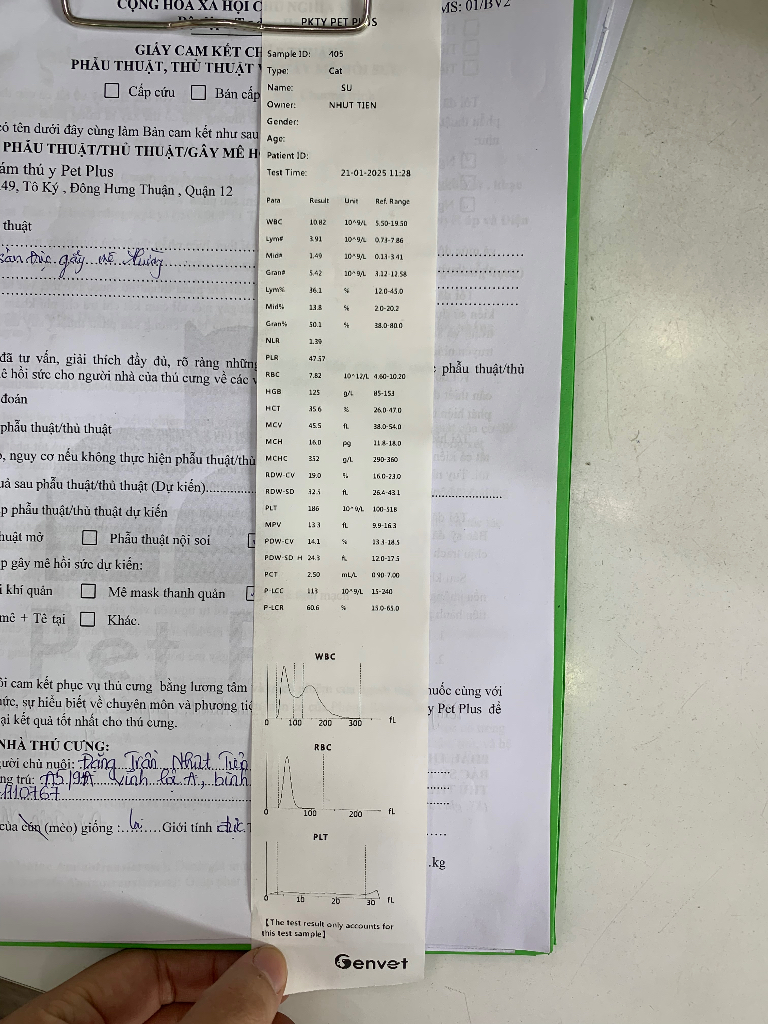 CỘNG HÒA XÃ HỘI C
MS: 01/BV2
PKTY PET PLUS
GIẤY CAM KẾT CH
PHẪU THUẬT, THỦ THUẬT
Cấp cứu
Bán cấp
có tên dưới đây cùng làm Bản cam kết như sau
PHẪU THUẬT/THỦ THUẬT/GÂY MÊ H
ám thú y Pet Plus
49, Tô Ký , Đông Hưng Thuận , Quận 12
thuật
đã tư vấn, giải thích đầy đủ, rõ ràng những
phẫu thuật/thủ
ê hồi sức cho người nhà của thú cưng về các v
đoán
phẫu thuật/thủ thuật
, nguy cơ nếu không thực hiện phẫu thuật/thủ
uả sau phẫu thuật/thủ thuật (Dự kiến)
p phẫu thuật/thủ thuật dự kiến
huật mở
Phẫu thuật nội soi
p gây mê hồi sức dự kiến:
i khí quản
Mê mask thanh quản
mê + Tê tại
Khác.
ôi cam kết phục vụ thú cưng bằng lương tâm
huốc cùng với
ức, sự hiểu biết về chuyên môn và phương tiệ
y Pet Plus để
ại kết quả tốt nhất cho thú cưng.
NHÀ THÚ CƯNG:
ười chủ nuôi: Đặng Trần Nhật Tiến
ng trú: A5/9A Vĩnh Lộc A, bình
của cún (mèo) giống :..lai....Giới tính đực
.kg
Sample ID: 405
Type: Cat
Name: SU
Owner: NHUT TIEN
Gender:
Age:
Patient ID:
Test Time: 21-01-2025 11:28
Para Result Unit Ref. Range
WBC 10.82 10^9/L 5.50-19.50
Lym# 3.91 10^9/L 0.73-7.86
Mid# 1.49 10^9/L 0.13-3.41
Gran# 5.42 10^9/L 3.12-12.58
Lym% 36.1 % 12.0-45.0
Mid% 13.8 % 2.0-20.2
Gran% 50.1 % 38.0-80.0
NLR 1.39
PLR 47.57
RBC 7.82 10^12/L 4.60-10.20
HGB 125 g/L 85-153
HCT 35.6 % 26.0-47.0
MCV 45.5 fL 38.0-54.0
MCH 16.0 pg 11.8-18.0
MCHC 352 g/L 290-360
RDW-CV 19.0 % 16.0-23.0
RDW-SD 32.5 fL 26.4-43.1
PLT 186 10^9/L 100-518
MPV 13.3 fL 9.9-16.3
PDW-CV 14.1 % 13.3-18.5
PDW-SD H 24.3 fL 12.0-17.5
PCT 2.50 mL/L 0.90-7.00
P-LCC 113 10^9/L 15-240
P-LCR 60.6 % 15.0-65.0
WBC
0 100 200 300 fL
RBC
0 100 200 fL
PLT
0 10 20 30 fL
【The test result only accounts for
this test sample】
Genvet